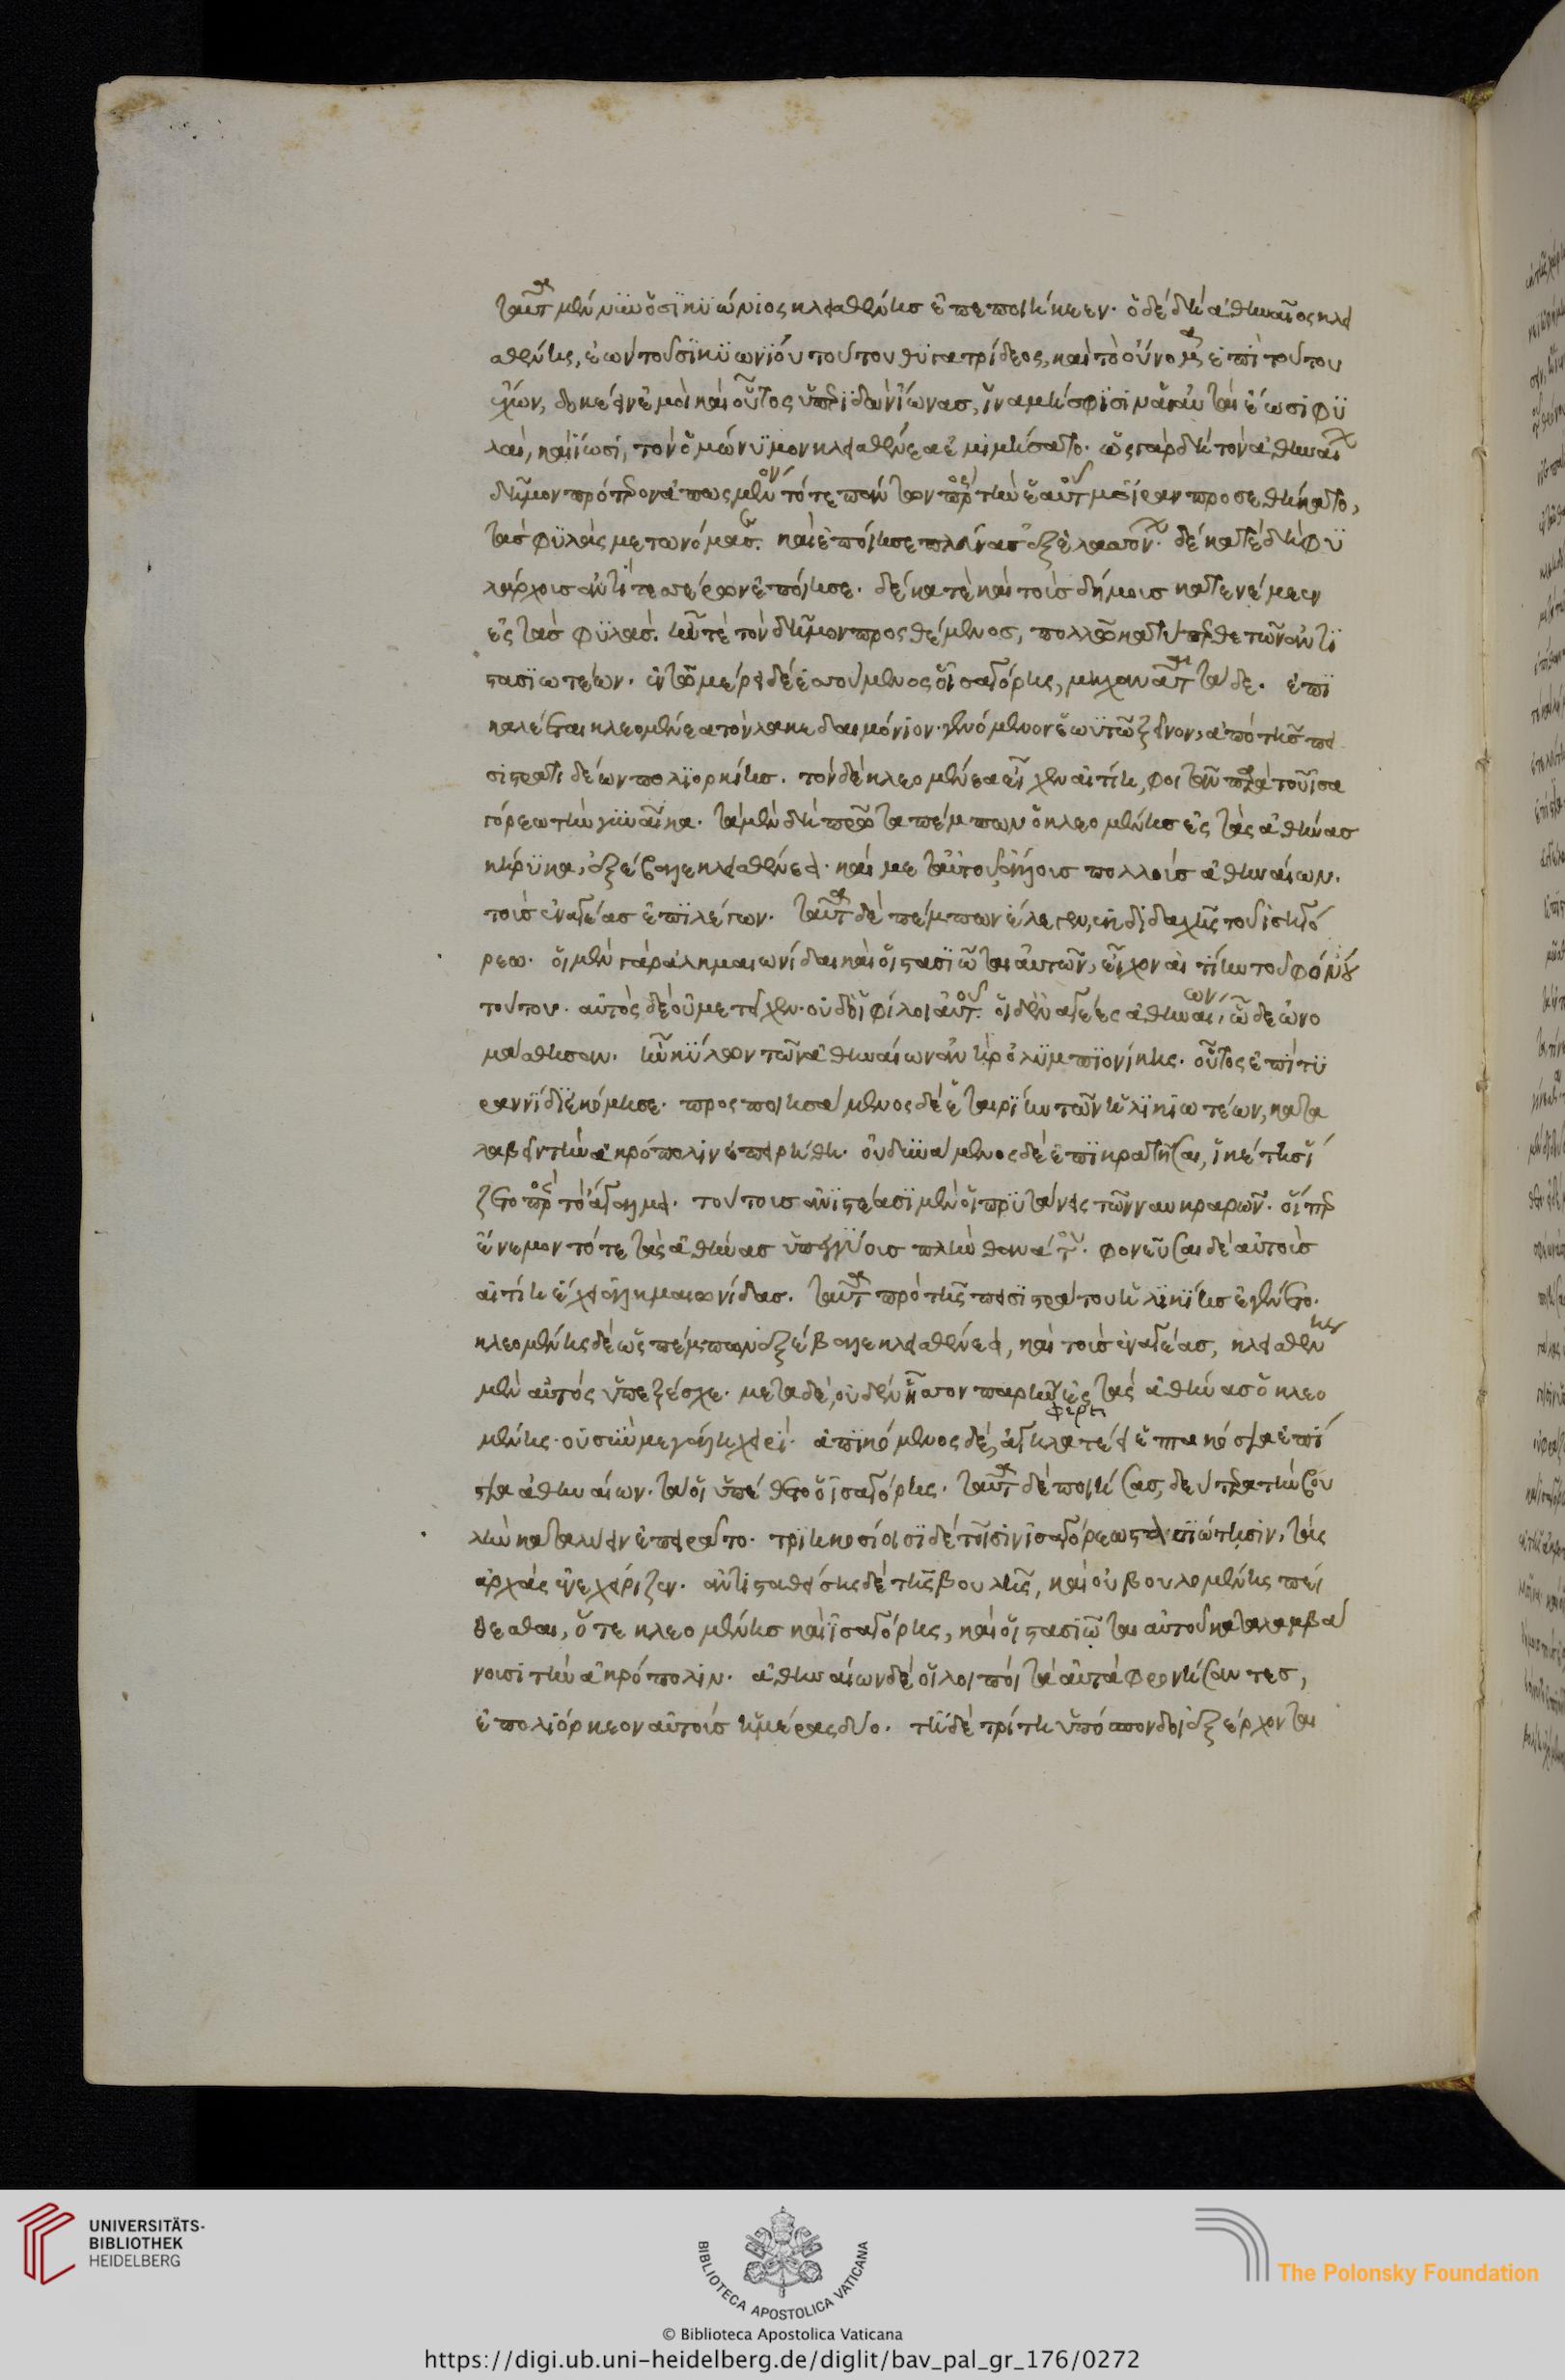 ταῦτα μέν νυν ὁ σικυώνιος κλεισθένης ἐπεποιήκεεν. ὁ δὲ δὴ ἀθηναῖος κλει
σθένης, ἐὼν τοῦ σικυωνίου τούτου θυγατριδέος, καὶ τὸ οὔνομα ἐπὶ τούτου
ἔχων, δοκέειν ἐμοὶ καὶ οὗτος ὑπεριδὼν ἴωνας, ἵνα μὴ σφίσι αἱ αὐταὶ ἔωσι φυ
λαὶ, καὶ ἴωσι, τὸν ὁμώνυμον κλεισθένεα ἐμιμήσατο. ὡς γὰρ δὴ τὸν ἀθηναίων
δῆμον πρότερον ἀπωσμένον τότε πάντων πρὸς τὴν ἑαυτοῦ μοῖραν προσεθήκατο,
τὰς φυλὰς μετωνόμασε. καὶ ἐποίησε πλεῦνας ἐξ ἐλασσόνων. δέκα τε δὴ φυ
λάρχους ἀντὶ τεσσέρων ἐποίησε. δέκα τὲ καὶ τοὺς δήμους κατένεμεεν
ἐς τὰς φυλάς. ἦν τὲ τὸν δῆμον προσθέμενος, πολλῷ κατύπερθε τῶν ἀντι
στασιωτέων. ἐν τῷ μέρει δὲ ἑσσούμενος ὁ ἰσαγόρης, μηχανᾶται τάδε. ἐπι
καλέεται κλεομένεα τὸν λακεδαιμόνιον. γενόμενον ἑωυτῷ ξεῖνον, ἀπὸ τῆς πει
σιστρατιδέων πολιορκίης. τὸν δὲ κλεομένεα εἶχεν αἰτίη, φοιτᾶν παρὰ τοῦ ἰσα
γόρεω τὴν γυναῖκα. τὰ μὲν δὴ πρῶτα πέμπων ὁ κλεομένης ἐς τὰς ἀθήνας
κήρυκα, ἐξέβαλλε κλεισθένεα. καὶ μετ αὐτοῦ ἄλλους πολλοὺς ἀθηναίων.
τοὺς ἐναγέας ἐπιλέγων. ταῦτα δὲ πέμπων ἔλεγεν, ἐκ διδαχῆς τοῦ ἰσηγό
ρεω. οἱ μὲν γὰρ ἀλκμαιωνίδαι καὶ οἱ στασιῶται αὐτῶν, εἶχον αἰτίην τοῦ φόνου
τούτου. αὐτὸς δὲ οὐ μετεῖχεν. οὐδ οἱ φίλοι αὐτοῦ. οἱ δ ἐναγέες ἀθηναίων, ὧδε ὠνο
μάσθησαν. ἦν κύλων τῶν ἀθηναίων ἀνὴρ ὀλυμπιονίκης. οὗτος ἐπὶ τυ
ραννίδι ἐκόμησε. προσποιησάμενος δὲ ἑταιρίην τῶν ἡλικιωτέων, κατα
λαβεῖν τὴν ἀκρόπολιν ἐπειρήθη. οὐ δυνάμενος δὲ ἐπικρατῆσαι, ἱκέτης ἵ
ζετο πρὸς τὸ ἄγαλμα. τούτους ἀνιστέασι μὲν οἱ πρυτάνεις τῶν ναυκραρῶν. οἵπερ
ἔνεμον τότε τὰς ἀθήνας ὑπεγγύους πλὴν θανάτου. φονεῦσαι δὲ αὐτοὺς
αἰτίη ἔχει ἀλκμαιωνίδας. ταῦτα πρὸ τῆς πεισιστράτου ἡλικίης ἐγένετο.
κλεομένης δὲ ὡς πέμπων ἐξέβαλλε κλεισθένεα, καὶ τοὺς ἐναγέας, κλεισθένης
μὲν αὐτὸς ὑπεξέσχε. μετὰ δὲ, οὐδὲν ἧσσον παρῆν ἐς τὰς ἀθήνας ὁ κλεο
μένης. οὐ σὺν μεγάλη χειρί. ἀπικόμενος δὲ, ἀγηλατέει ἑπτακόσια ἐπί
στια ἀθηναίων. τά οἱ ὑπέθετο ὁ ἰσαγόρης. ταῦτα δὲ ποιήσας, δεύτερα τὴν βου
λὴν καταλύειν ἐπειρᾶτο. τριηκοσίοισι δὲ τοῖσιν ἰσαγόρεω στασιώτησιν, τὰς
ἀρχὰς ἐνεχείριζεν. ἀντισταθείσης δὲ τῆς βουλῆς, καὶ οὐ βουλομένης πεί
θεσθαι, ὅ τε κλεομένης καὶ ἰσαγόρης, καὶ οἱ στασιῶται αὐτοῦ καταλαμβά
νουσι τὴν ἀκρόπολιν. ἀθηναίων δὲ οἱ λοιποὶ τὰ αὐτὰ φρονήσαντες,
ἐπολιόρκεον αὐτοὺς ἡμέρας δύο. τῆ δὲ τρίτη ὑπόσπονδοι ἐξέρχονται
UNIVERSITÄTS-
BIBLIOTHEK
HEIDELBERG
BIBLIOTECA APOSTOLICA VATICANA
The Polonsky Foundation
© Biblioteca Apostolica Vaticana
https://digi.ub.uni-heidelberg.de/diglit/bav_pal_gr_176/0272